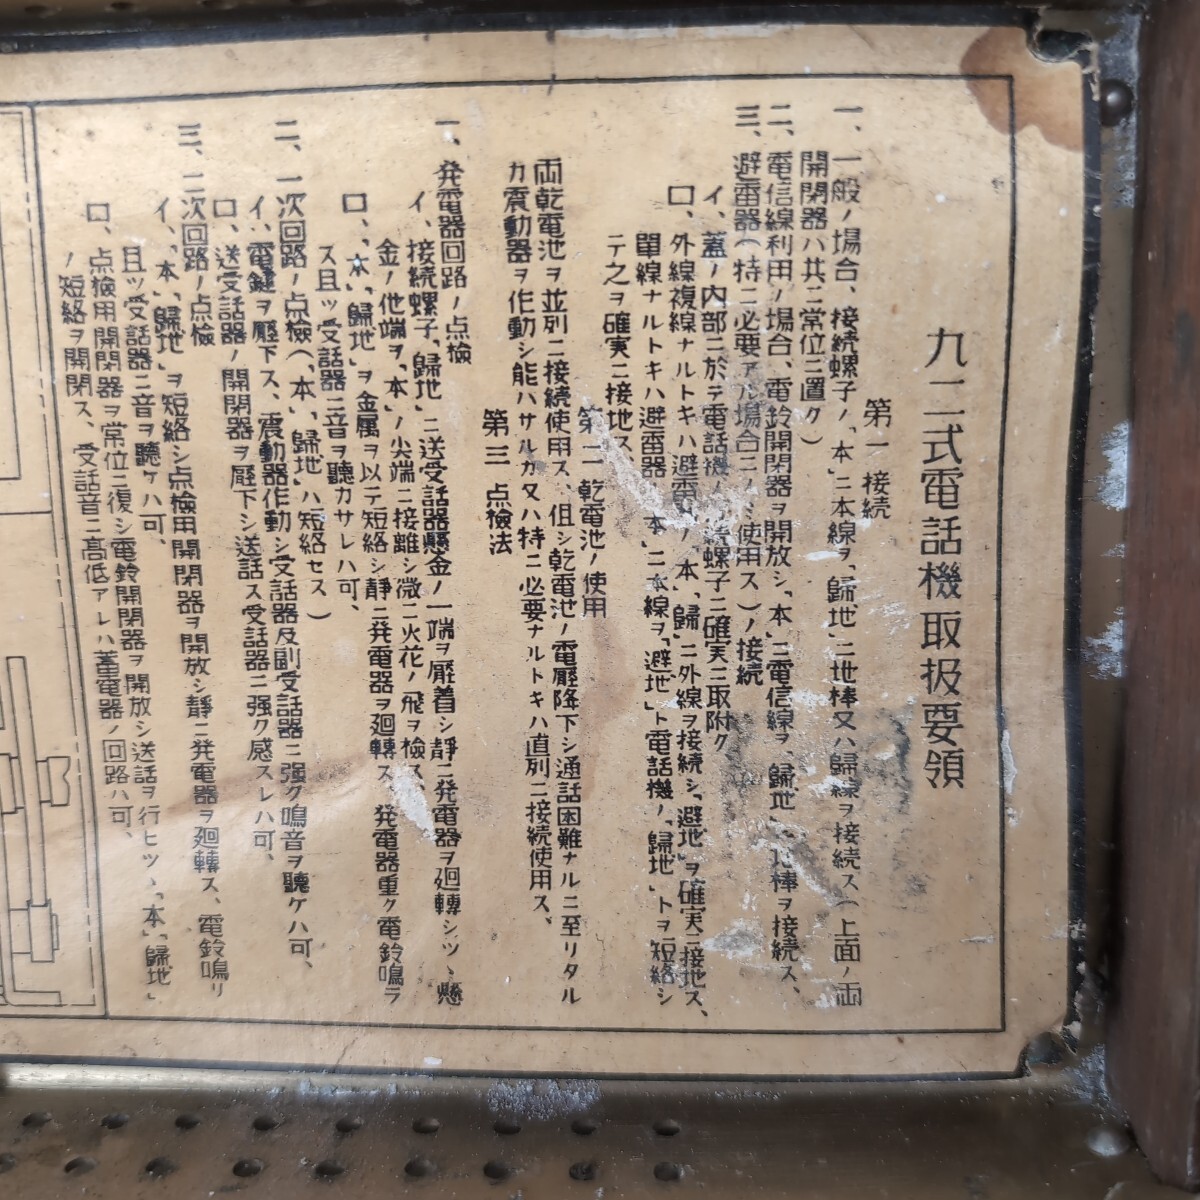 九二式電話機取扱要領
第一 接続
一、一般ノ場合、接続螺子ノ「本」ニ本線ヲ、「歸地」ニ地棒又ハ歸線ヲ接続ス(上面ノ両
開閉器ハ共ニ常位ニ置ク)
二、電信線利用ノ場合、電鈴開閉器ヲ開放シ、「本」ニ電信線ヲ、「歸地」ニ地棒ヲ接続ス、
三、避雷器(特ニ必要アル場合ニノミ使用ス)ノ接続
イ、蓋ノ内部ニ於テ電話機ノ 続螺子ニ確実ニ取附ク
ロ、外線複線ナルトキハ避雷 ノ「本」「歸」ニ外線ヲ接続シ、「避地」ヲ確実ニ接地ス、
單線ナルトキハ避雷器 「本」ニ本線ヲ、「避地」ト電話機ノ「歸地」トヲ短絡シ
テ之ヲ確実ニ接地ス、
第二 乾電池ノ使用
両乾電池ヲ並列ニ接続使用ス、但シ乾電池ノ電壓降下シ通話困難ナルニ至リタル
カ震動器ヲ作動シ能ハサルカ又ハ特ニ必要ナルトキハ直列ニ接続使用ス、
第三 点検法
一、発電器回路ノ点檢
イ、接続螺子「歸地」ニ送受話器懸金ノ一端ヲ壓着シ靜ニ発電器ヲ廻轉シツヽ懸
金ノ他端ヲ「本」ノ尖端ニ接離シ微ニ火花ノ飛ヲ檢ス、
ロ、「本」「歸地」ヲ金属ヲ以テ短絡シ靜ニ発電器ヲ廻轉ス、発電器重ク電鈴鳴ラ
ス且ツ受話器ニ音ヲ聽カサレハ可、
二、一次回路ノ点檢(「本」「歸地」ハ短絡セス)
イ、電鍵ヲ壓下ス、震動器作動シ受話器及副受話器ニ强ク鳴音ヲ聽ケハ可、
ロ、送受話器ノ開閉器ヲ壓下シ送話ス受話器ニ强ク感スレハ可、
三、二次回路ノ点檢
イ、「本」「歸地」ヲ短絡シ点檢用開閉器ヲ開放シ靜ニ発電器ヲ廻轉ス、電鈴鳴リ
且ツ受話器ニ音ヲ聽ケハ可、
ロ、点檢用開閉器ヲ常位ニ復シ電鈴開閉器ヲ開放シ送話ヲ行ヒツヽ「本」「歸地」
ノ短絡ヲ開閉ス、受話音ニ高低アレハ蓄電器ノ回路ハ可、